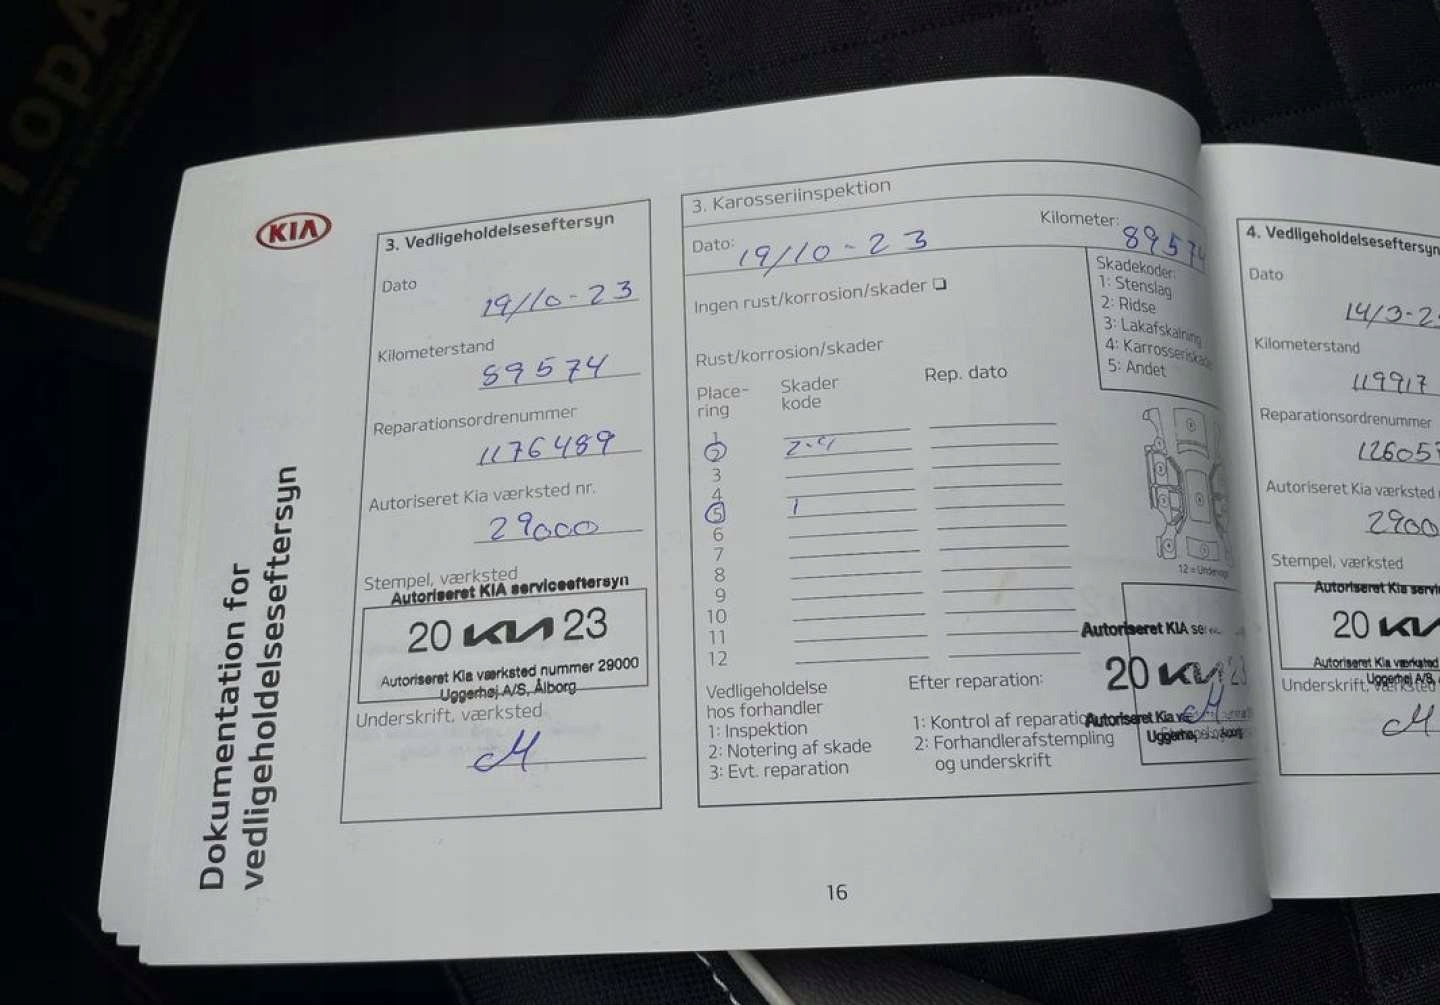 TOPDA
KIA
Dokumentation for
vedligeholdelseseftersyn
3. Vedligeholdelseseftersyn
Dato
19/10-23
Kilometerstand
89574
Reparationsordrenummer
1176489
Autoriseret Kia værksted nr.
29000
Stempel, værksted
Autoriseret KIA serviceeftersyn
20 KIA 23
Autoriseret Kia værksted nummer 29000
Uggerhøj A/S, Ålborg
Underskrift, værksted
3. Karosseriinspektion
Dato: 19/10-23
Kilometer: 89574
Ingen rust/korrosion/skader
Skadekoder:
1: Stenslag
2: Ridse
3: Lakafskalning
4: Karrosseriskade
5: Andet
Rust/korrosion/skader
Place-
ring
Skader
kode
Rep. dato
1
2 2-4
3
4
5 1
6
7
8
9
10
11
12
12 = Undervogn
Vedligeholdelse
hos forhandler
1: Inspektion
2: Notering af skade
3: Evt. reparation
Efter reparation:
1: Kontrol af reparation
2: Forhandlerafstempling
og underskrift
Autoriseret KIA se
20 KIA 23
Autoriseret Kia
16
4. Vedligeholdelseseftersyn
Dato
14/3-2
Kilometerstand
119917
Reparationsordrenummer
12605
Autoriseret Kia værksted
2900
Stempel, værksted
Autoriseret Kia servi
20 KI
Autoriseret Kia værksted
Uggerhøj A/S,
Underskrift, værksted